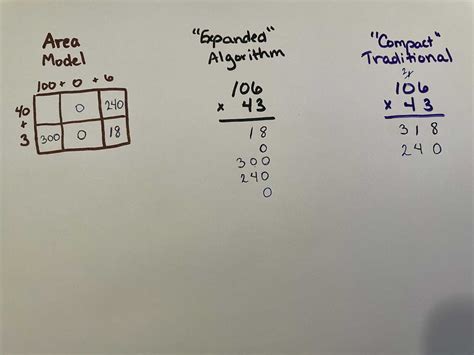 Area
Model
100 + 0 + 6
40 0 240
+
3 300 0 18
"Expanded"
Algorithm
106
× 43
18
0
300
240
0
"Compact"
Traditional
106
× 43
318
240